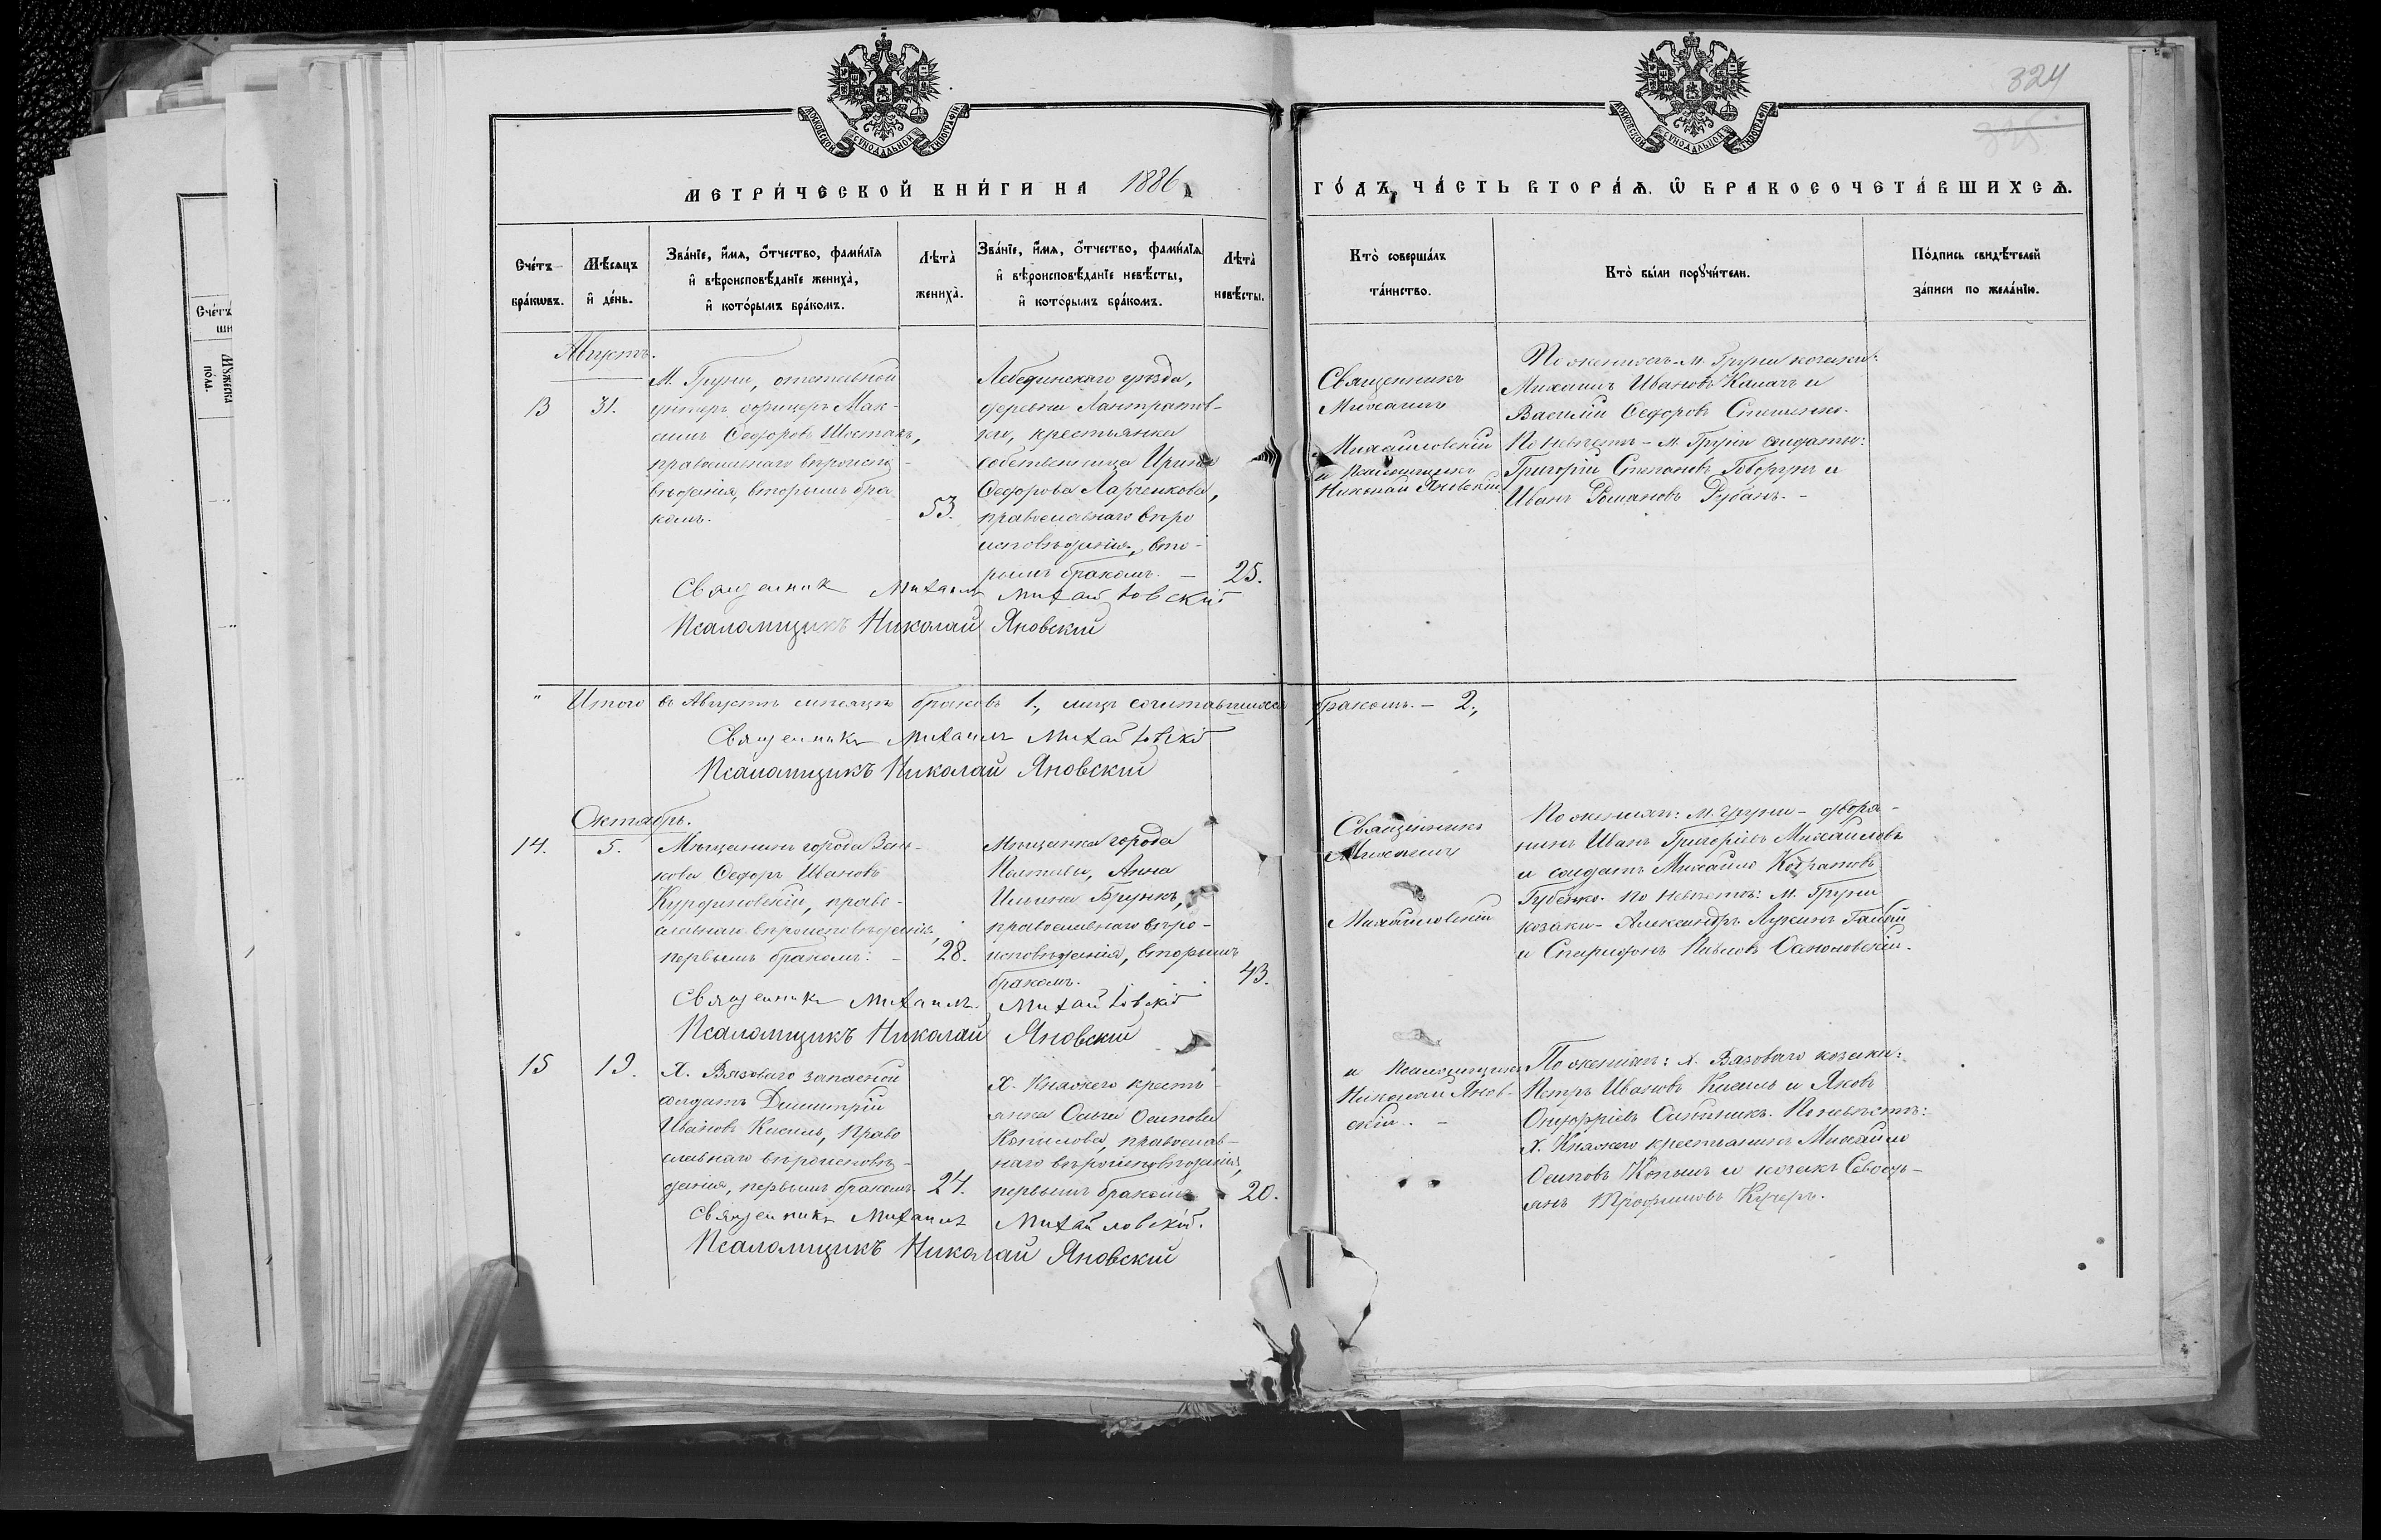 324
МОСКОВСКОЙ СУНОДАЛЬНОЙ ТИПОГРАФІИ
МОСКОВСКОЙ СУНОДАЛЬНОЙ ТИПОГРАФІИ
МЕТРИ́ЧЕСКОЙ КНИ́ГИ НА 1886
ГО́ДЪ, ЧА́СТЬ ВТОРА́Ѧ Ѿ БРАКОСОЧЕТА́ВШИХСѦ.
Сче́тъ бра́кѡвъ.
Мѣ́сяцъ и҆ де́нь.
Зва́нїе, и҆́мѧ, ѻ҆́тчество, фами́лїѧ
и҆ вѣроисповѣ́данїе жениха̀,
и҆ кото́рымъ бра́комъ.
Лѣта̀ жениха̀.
Зва́нїе, и҆́мѧ, ѻ҆́тчество, фами́лїѧ
и҆ вѣроисповѣ́данїе невѣ́сты,
и҆ кото́рымъ бра́комъ.
Лѣта̀ невѣ́сты.
Кто̀ соверша́лъ
та́инство.
Кто̀ бы́ли порꙋчи́тели.
По́дпись свидѣ́телей
за́писи по жела́нїю.
Августъ.
13
31.
М. Груни, отставной
унтеръ офицеръ Мак-
симъ Ѳедоровъ Шостакъ,
православнаго вѣроиспо-
вѣданія, вторымъ бра-
комъ.
53.
Лебединскаго уѣзда,
деревни Лантратов-
ки, крестьянка
собственница Ирина
Ѳедорова Ларченкова,
православнаго вѣро
исповѣданія, вто-
рымъ бракомъ. —
25.
Священникъ
Михаилъ
Михайловскій
и Псаломщикъ
Николай Яновскій
По женихѣ - м. Груни козаки:
Михаилъ Ивановъ Калачъ и
Василій Ѳедоровъ
По невѣстѣ - м. Груни солдаты:
Григорій Степановъ Говорунъ и
Иванъ Романовъ Рубанъ. -
Священникъ Михаилъ Михайловскій
Псаломщикъ Николай Яновскій
" Итого въ Августѣ мѣсяцѣ браковъ 1, лицъ сочетавшихся бракомъ. - 2,
Священникъ Михаилъ Михайловскій
Псаломщикъ Николай Яновскій
Октябрь.
14.
5.
Мѣщанинъ города Зень-
кова Ѳедоръ Ивановъ
право-
славнаго вѣроисповѣданія,
первымъ бракомъ: -
28.
Мѣщанка города
Полтавы, Анна
Ильина Брункъ,
православнаго вѣро-
исповѣданія, вторымъ
бракомъ.
43.
Священникъ
Михаилъ
Михайловскій
По женихѣ: м. Груни - дворя-
нинъ Иванъ Григоріевъ Михайловъ
и солдатъ Михайло
Губенко. По невѣстѣ: м. Груни
козаки - Александръ Лукинъ
и Спиридонъ Павловъ
Священникъ Михаилъ Михайловскій
Псаломщикъ Николай Яновскій
15
19.
Х. Вязоваго запасной
солдатъ Димитрій
Ивановъ Кисиль, право
славнаго вѣроисповѣ-
данія, первымъ бракомъ.
24.
Х. Княжего кресть-
янка Ольга Осипова
Копилова, православ-
наго вѣроисповѣданія,
первымъ бракомъ
20.
и Псаломщикъ
Николай Янов-
скій. -
По женихѣ: х. Вязоваго козаки:
Петръ Ивановъ Кисиль и Яковъ
Онуфріевъ По невѣстѣ:
Х. Княжего крестьянинъ Михайло
Осиповъ Копылъ и козакъ Савость-
янъ Трофимовъ Кучеръ.
Священникъ Михаилъ Михайловскій.
Псаломщикъ Николай Яновскій